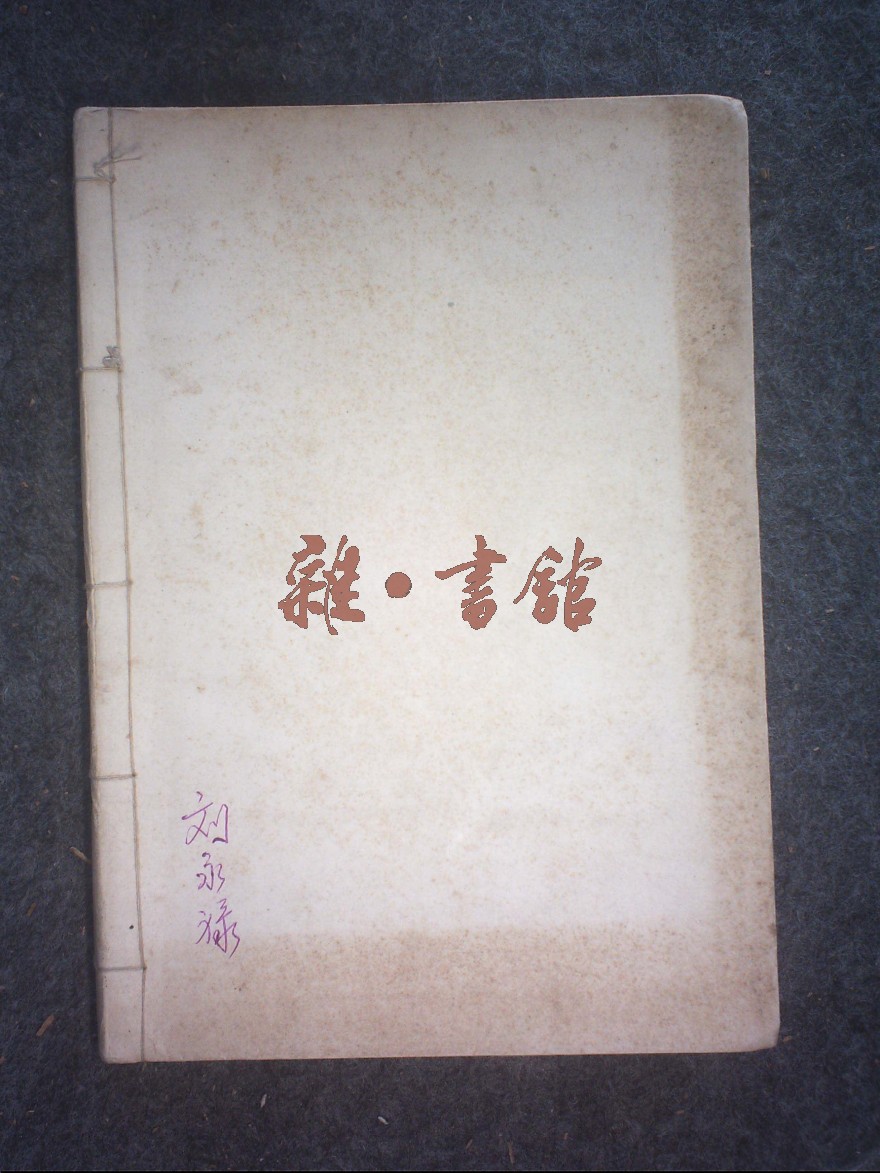 雜·書館
刘永禄